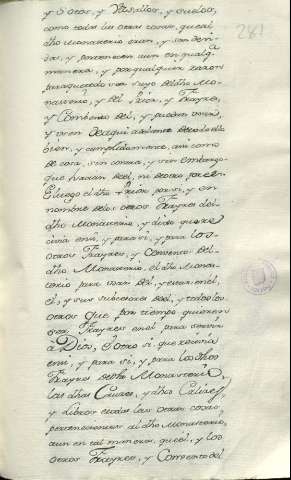 281
y Sotos, y Vasallos, y sueldo,
como todas las otras cosas, que al
dho Monasterio eran, y son devi-
das, y pertenecen aun en qualq.
manera, y por qualquier razon
para que todo sea suyo del dho Mo-
nasterio, y del Prior, y Frayres,
y Combento del, y puedan
y usen de aqui adelante de todo ello
bien, y cumplidamente, asi como
de cosa, sin contra, y sin embargo
que hayan del, ni de otra parte.
E luego el dho Prior por si, y en
nombre de los otros Frayres del
dho Monasterio, y dixo que re
civia en si, y para si, y para los
otros Frayres, y Convento del
dho Monasterio, el dho Monas
terio para usar del, y estar en el,
el, y sus subcesores del, y todos los
otros que por tiempo quisieren
ser Frayres en el para servir
à Dios, E otro si que recivia
en si, y para si, y para los dhos
Frayres de dho Monasterio
las dhas Cruces, y dhos Calizes,
y Libros e todas las otras cosas
pertenecientes al dho Monasterio,
aun en tal manera, que el, y los
otros Frayres, y Comvento del